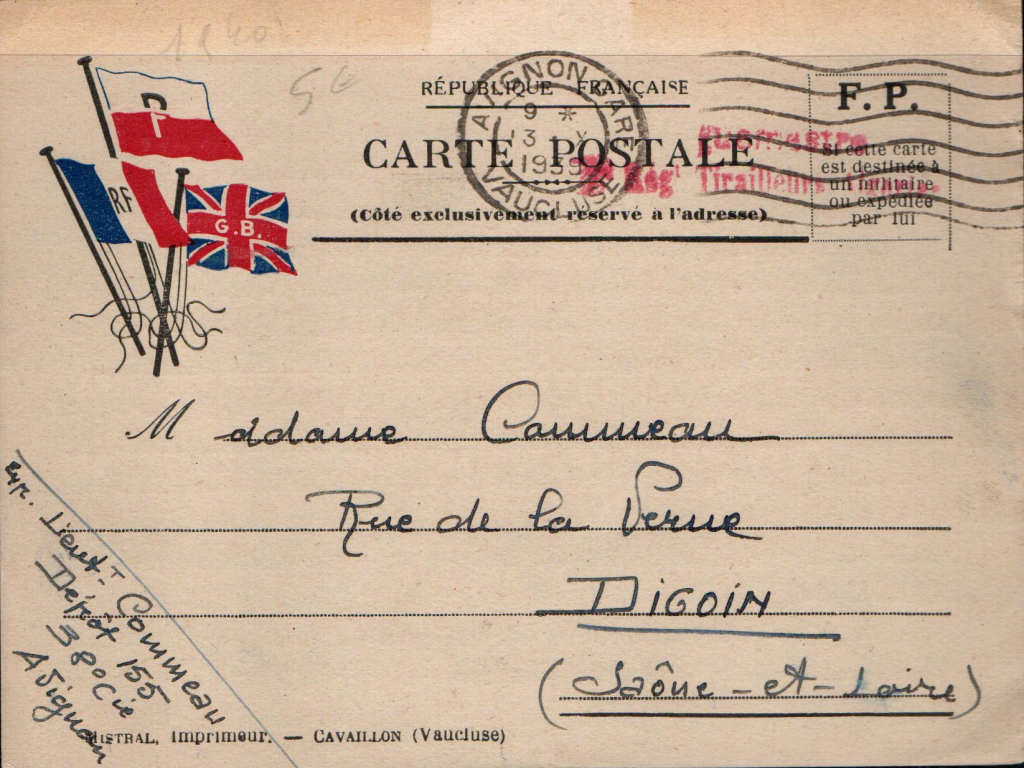 1940
5€
P
RF
G.B.
RÉPUBLIQUE FRANÇAISE
CARTE POSTALE
(Côté exclusivement réservé à l'adresse)
AVIGNON GARE
9 *
13 IX
1939
VAUCLUSE
F. P.
Si cette carte
est destinée à
un militaire
ou expédiée
par lui
Régt Tirailleurs
M adame Commeau
Rue de la Verne
DIGOIN
(Saône-et-Loire)
Exp. Lieutt Commeau
Dépôt 155
38° Cie
Avignon
MISTRAL, imprimeur. — CAVAILLON (Vaucluse)